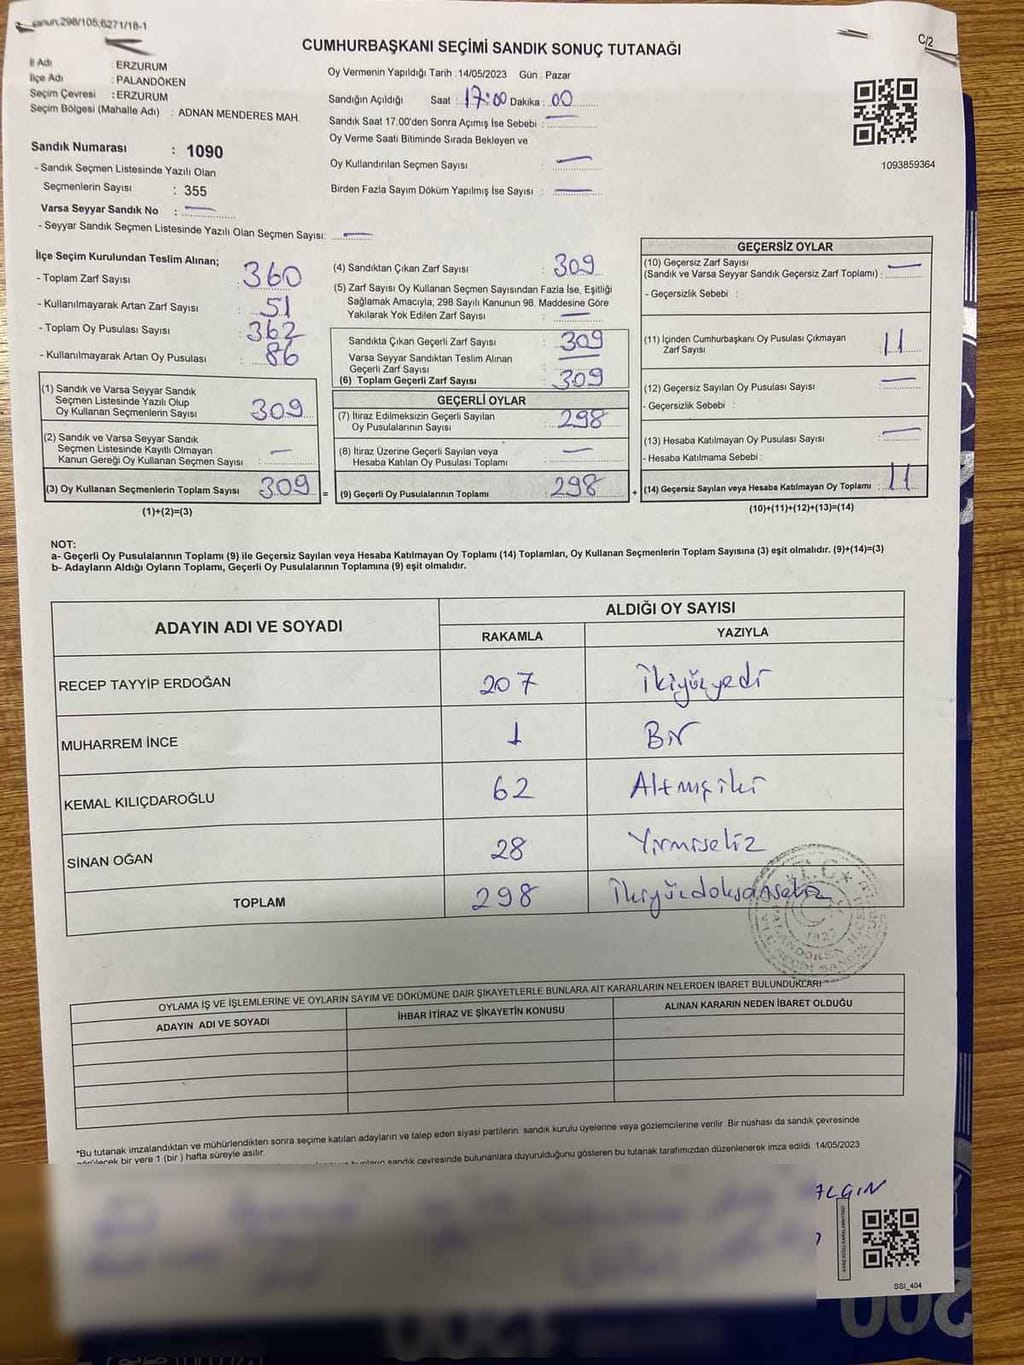 anun,298/105,6271/18-1
C/2
CUMHURBAŞKANI SEÇİMİ SANDIK SONUÇ TUTANAĞI
İl Adı : ERZURUM
İlçe Adı : PALANDÖKEN
Seçim Çevresi : ERZURUM
Seçim Bölgesi (Mahalle Adı) : ADNAN MENDERES MAH.
Oy Vermenin Yapıldığı Tarih : 14/05/2023 Gün : Pazar
Sandığın Açıldığı Saat : 17:00 Dakika : 00
Sandık Saat 17.00'den Sonra Açımış İse Sebebi : —
Oy Verme Saati Bitiminde Sırada Bekleyen ve
Oy Kullandırılan Seçmen Sayısı : —
Birden Fazla Sayım Döküm Yapılmış İse Sayısı : —
1093859364
Sandık Numarası : 1090
- Sandık Seçmen Listesinde Yazılı Olan
Seçmenlerin Sayısı : 355
Varsa Seyyar Sandık No : —
- Seyyar Sandık Seçmen Listesinde Yazılı Olan Seçmen Sayısı: —
İlçe Seçim Kurulundan Teslim Alınan;
- Toplam Zarf Sayısı : 360
- Kullanılmayarak Artan Zarf Sayısı : 51
- Toplam Oy Pusulası Sayısı : 362
- Kullanılmayarak Artan Oy Pusulası : 86
(1) Sandık ve Varsa Seyyar Sandık
Seçmen Listesinde Yazılı Olup
Oy Kullanan Seçmenlerin Sayısı : 309
(2) Sandık ve Varsa Seyyar Sandık
Seçmen Listesinde Kayıtlı Olmayan
Kanun Gereği Oy Kullanan Seçmen Sayısı : —
(3) Oy Kullanan Seçmenlerin Toplam Sayısı 309 =
(1)+(2)=(3)
(4) Sandıktan Çıkan Zarf Sayısı : 309
(5) Zarf Sayısı Oy Kullanan Seçmen Sayısından Fazla İse, Eşitliği
Sağlamak Amacıyla; 298 Sayılı Kanunun 98. Maddesine Göre
Yakılarak Yok Edilen Zarf Sayısı : —
Sandıkta Çıkan Geçerli Zarf Sayısı : 309
Varsa Seyyar Sandıktan Teslim Alınan
Geçerli Zarf Sayısı : —
(6) Toplam Geçerli Zarf Sayısı : 309
GEÇERLİ OYLAR
(7) İtiraz Edilmeksizin Geçerli Sayılan
Oy Pusulalarının Sayısı : 298
(8) İtiraz Üzerine Geçerli Sayılan veya
Hesaba Katılan Oy Pusulası Toplamı : —
(9) Geçerli Oy Pusulalarının Toplamı : 298 +
GEÇERSİZ OYLAR
(10) Geçersiz Zarf Sayısı
(Sandık ve Varsa Seyyar Sandık Geçersiz Zarf Toplamı) : —
- Geçersizlik Sebebi :
(11) İçinden Cumhurbaşkanı Oy Pusulası Çıkmayan
Zarf Sayısı : 11
(12) Geçersiz Sayılan Oy Pusulası Sayısı : —
- Geçersizlik Sebebi :
(13) Hesaba Katılmayan Oy Pusulası Sayısı : —
- Hesaba Katılmama Sebebi :
(14) Geçersiz Sayılan veya Hesaba Katılmayan Oy Toplamı : 11
(10)+(11)+(12)+(13)=(14)
NOT:
a- Geçerli Oy Pusulalarının Toplamı (9) ile Geçersiz Sayılan veya Hesaba Katılmayan Oy Toplamı (14) Toplamları, Oy Kullanan Seçmenlerin Toplam Sayısına (3) eşit olmalıdır. (9)+(14)=(3)
b- Adayların Aldığı Oyların Toplamı, Geçerli Oy Pusulalarının Toplamına (9) eşit olmalıdır.
ADAYIN ADI VE SOYADI
ALDIĞI OY SAYISI
RAKAMLA YAZIYLA
RECEP TAYYİP ERDOĞAN 207 İkiyüzyedi
MUHARREM İNCE 1 Bir
KEMAL KILIÇDAROĞLU 62 Altmışiki
SİNAN OĞAN 28 Yirmisekiz
TOPLAM 298 İkiyüzdoksansekiz
OYLAMA İŞ VE İŞLEMLERİNE VE OYLARIN SAYIM VE DÖKÜMÜNE DAİR ŞİKAYETLERLE BUNLARA AİT KARARLARIN NELERDEN İBARET BULUNDUKLARI
ADAYIN ADI VE SOYADI İHBAR İTİRAZ VE ŞİKAYETİN KONUSU ALINAN KARARIN NEDEN İBARET OLDUĞU
*Bu tutanak imzalandıktan ve mühürlendikten sonra seçime katılan adayların ve talep eden siyasi partilerin sandık kurulu üyelerine veya gözlemcilerine verilir. Bir nüshası da sandık çevresinde
görülecek bir yere 1 (bir ) hafta süreyle asılır.
sandık çevresinde bulunanlara duyurulduğunu gösteren bu tutanak tarafımızdan düzenlenerek imza edildi. 14/05/2023
ALGIN
SSI_404